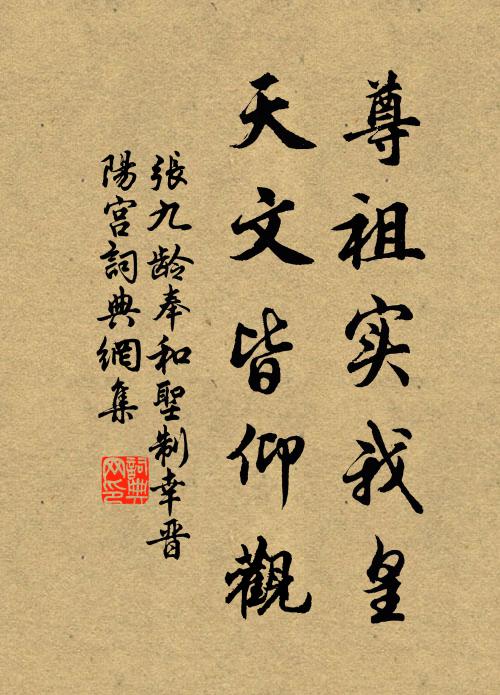 尊祖实我皇
天文皆仰觀
張九龄奉和聖制幸晋
陽宫詞典網集
詞典
网印